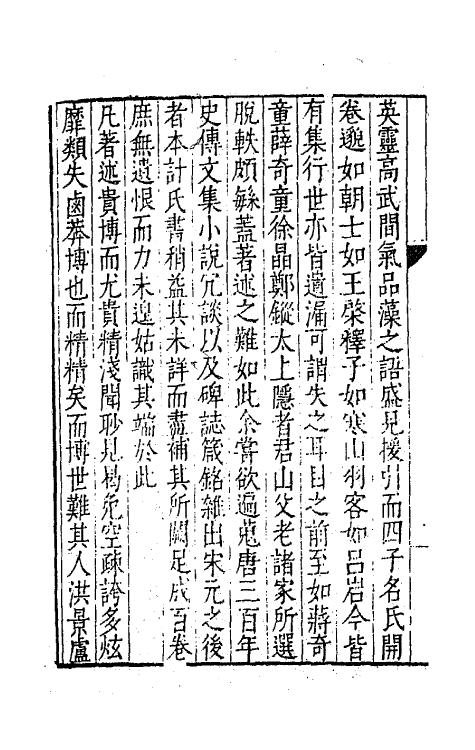 英靈高武間氣品藻之語盛見援引而四子名氏開
卷邈如朝士如王棨釋子如寒山羽客如呂岩今皆
有集行世亦皆遺漏可謂失之耳目之前至如蔣奇
童薛奇童徐晶鄭鏦太上隱者君山父老諸家所選
脫軼頗緐蓋著述之難如此余嘗欲遍蒐唐三百年
史傳文集小說冗談以及碑誌箴銘雜出宋元之後
者本計氏書稍益其未詳而盡補其所闕足成百卷
庶無遺恨而力未遑姑識其端於此
凡著述貴博而尤貴精淺聞眇見曷免空疎誇多炫
靡類失鹵莽博也而精精矣而博世難其人洪景盧